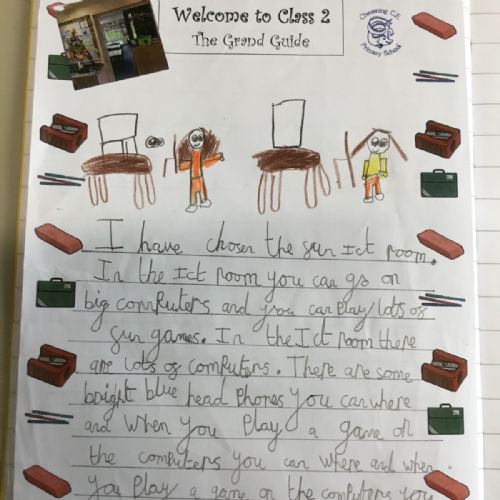 Welcome to Class 2
The Grand Guide
Chevening C.E.
Primary School
I have chosen the fun Ict room.
In the Ict room you can go on
big computers and you can play lots of
fun games. In the Ict room there
are lots of computers. There are some
bright blue head phones you can where
and when you play a game on
the computers you can where and when
you play a game on the computers you